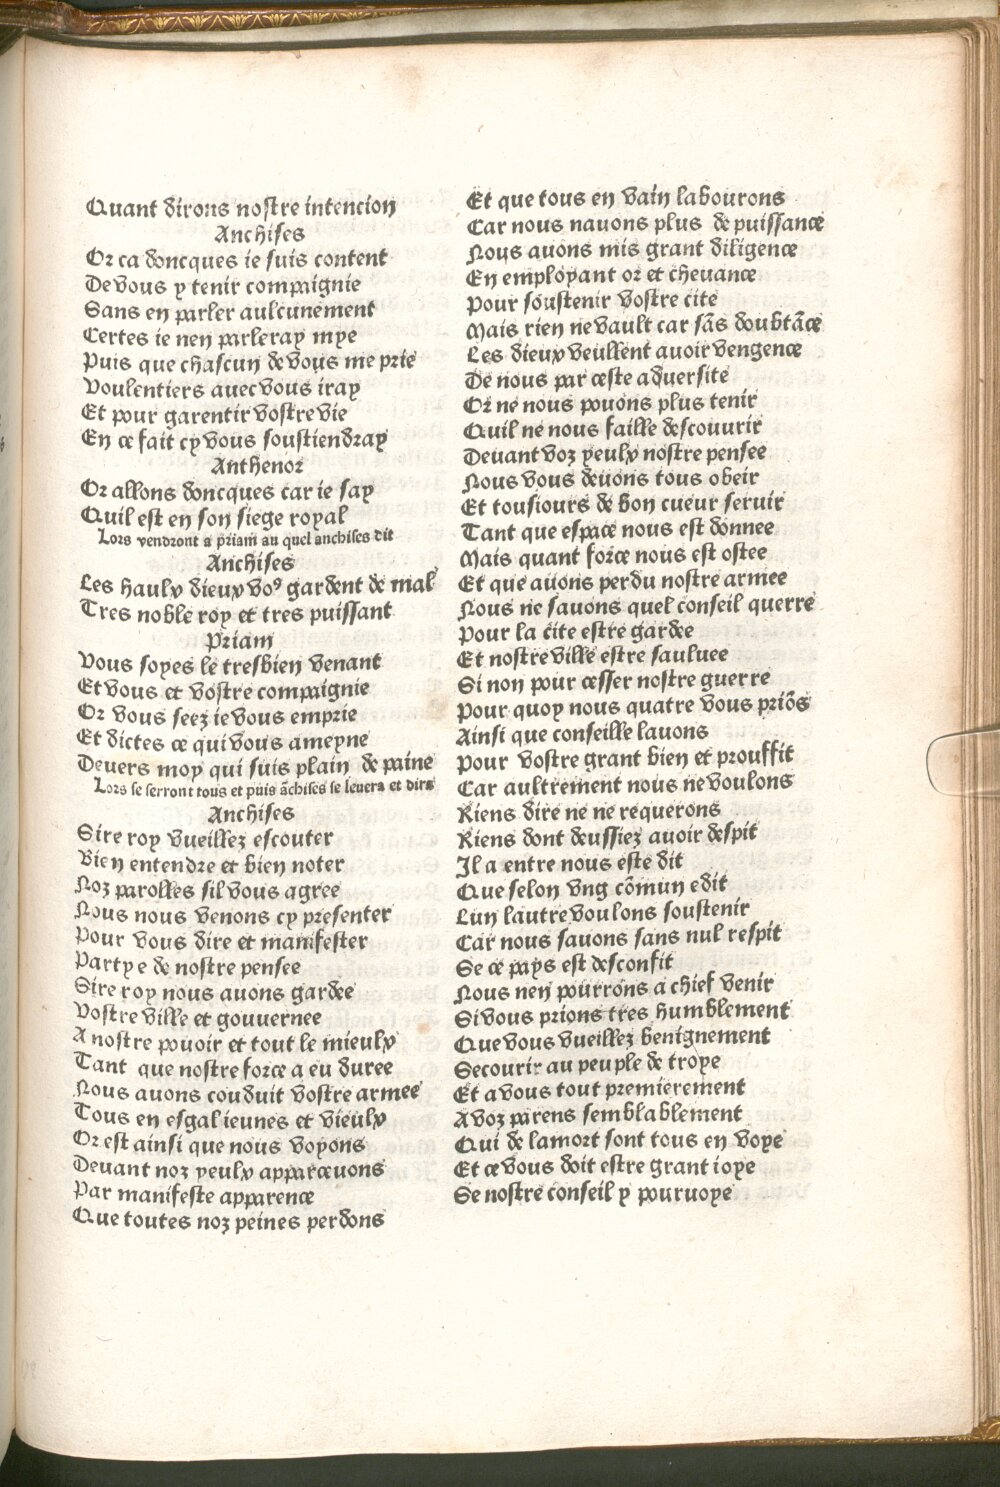 Quant dirons nostre intencion
Anchises
Or ca doncques ie suis content
De vous y tenir compaignie
Sans en parler aulcunement
Certes ie nen parleray mye
Puis que chascun de vous me prie
Voulentiers auec vous iray
Et pour garentir vostre vie
En ce fait cy vous soustiendray
Anthenor
Or allons doncques car ie say
Quil est en son siege royal
Lors vendront a priam au quel anchises dit
Anchises
Les haulx dieux voꝰ gardent de mal
Tres noble roy et tres puissant
Priam
Vous soyes le tresbien venant
Et vous et vostre compaignie
Or vous seez ie vous emprie
Et dictes ce qui vous ameyne
Deuers moy qui suis plain de paine
Lors se serront tous et puis āchises se leuera et dira
Anchises
Sire roy vueillez escouter
Bien entendre et bien noter
Noz parolles sil vous agree
Nous nous venons cy presenter
Pour vous dire et manifester
Partye de nostre pensee
Sire roy nous auons gardee
Vostre ville et gouuernee
A nostre pouoir et tout le mieulx
Tant que nostre force a eu duree
Nous auons couduit vostre armee
Tous en esgal ieunes et vieulx
Or est ainsi que nous voyons
Deuant noz yeulx apparceuons
Par manifeste apparence
Que toutes noz peines perdons
Et que tous en vain labourons
Car nous nauons plus de puissance
Nous auons mis grant diligence
En employant or et cheuance
Pour soustenir vostre cite
Mais rien ne vault car sās doubtāce
Les dieux veullent auoir vengence
De nous par ceste aduersite
Or ne nous pouons plus tenir
Quil ne nous faille descouurir
Deuant voz yeulx nostre pensee
Nous vous deuons tous obeir
Et tousiours de bon cueur seruir
Tant que espace nous est donnee
Mais quant force nous est ostee
Et que auons perdu nostre armee
Nous ne sauons quel conseil querre
Pour la cite estre gardee
Et nostre ville estre sauluee
Si non pour cesser nostre guerre
Pour quoy nous quatre vous priōs
Ainsi que conseille lauons
Pour vostre grant bien et prouffit
Car aultrement nous ne voulons
Riens dire ne ne requerons
Riens dont deussiez auoir despit
Il a entre nous este dit
Que selon vng cōmun edit
Lun lautre voulons soustenir
Car nous sauons sans nul respit
Se ce pays est desconfit
Nous nen pourrons a chief venir
Si vous prions tres humblement
Que vous vueillez benignement
Secourir au peuple de troye
Et a vous tout premierement
A voz parens semblablement
Qui de lamort sont tous en voye
Et ce vous doit estre grant ioye
Se nostre conseil y pouruoye